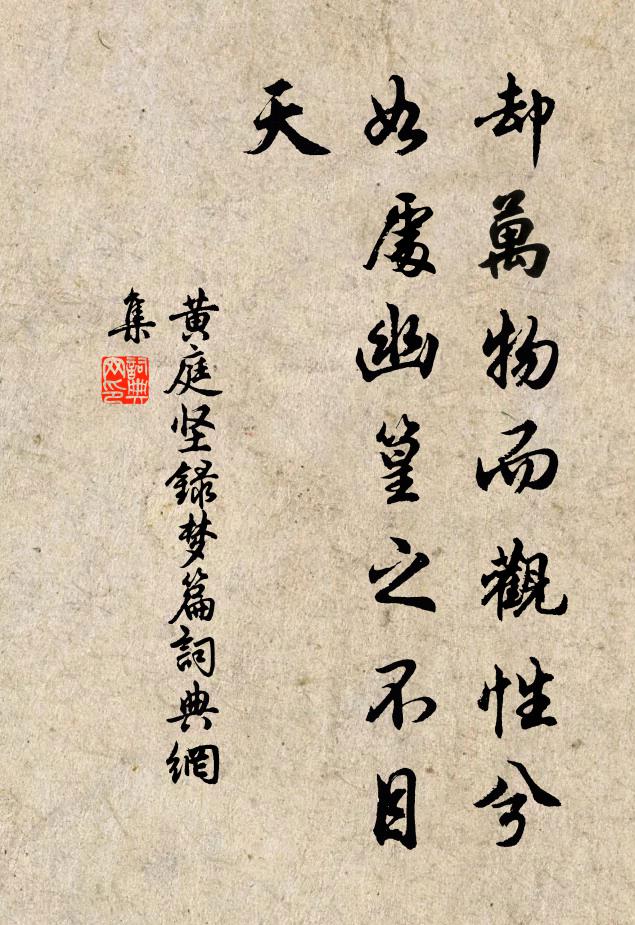 却萬物而觀性兮
如處幽篁之不目
天
黄庭坚録梦篇詞典網
集
詞典
网印